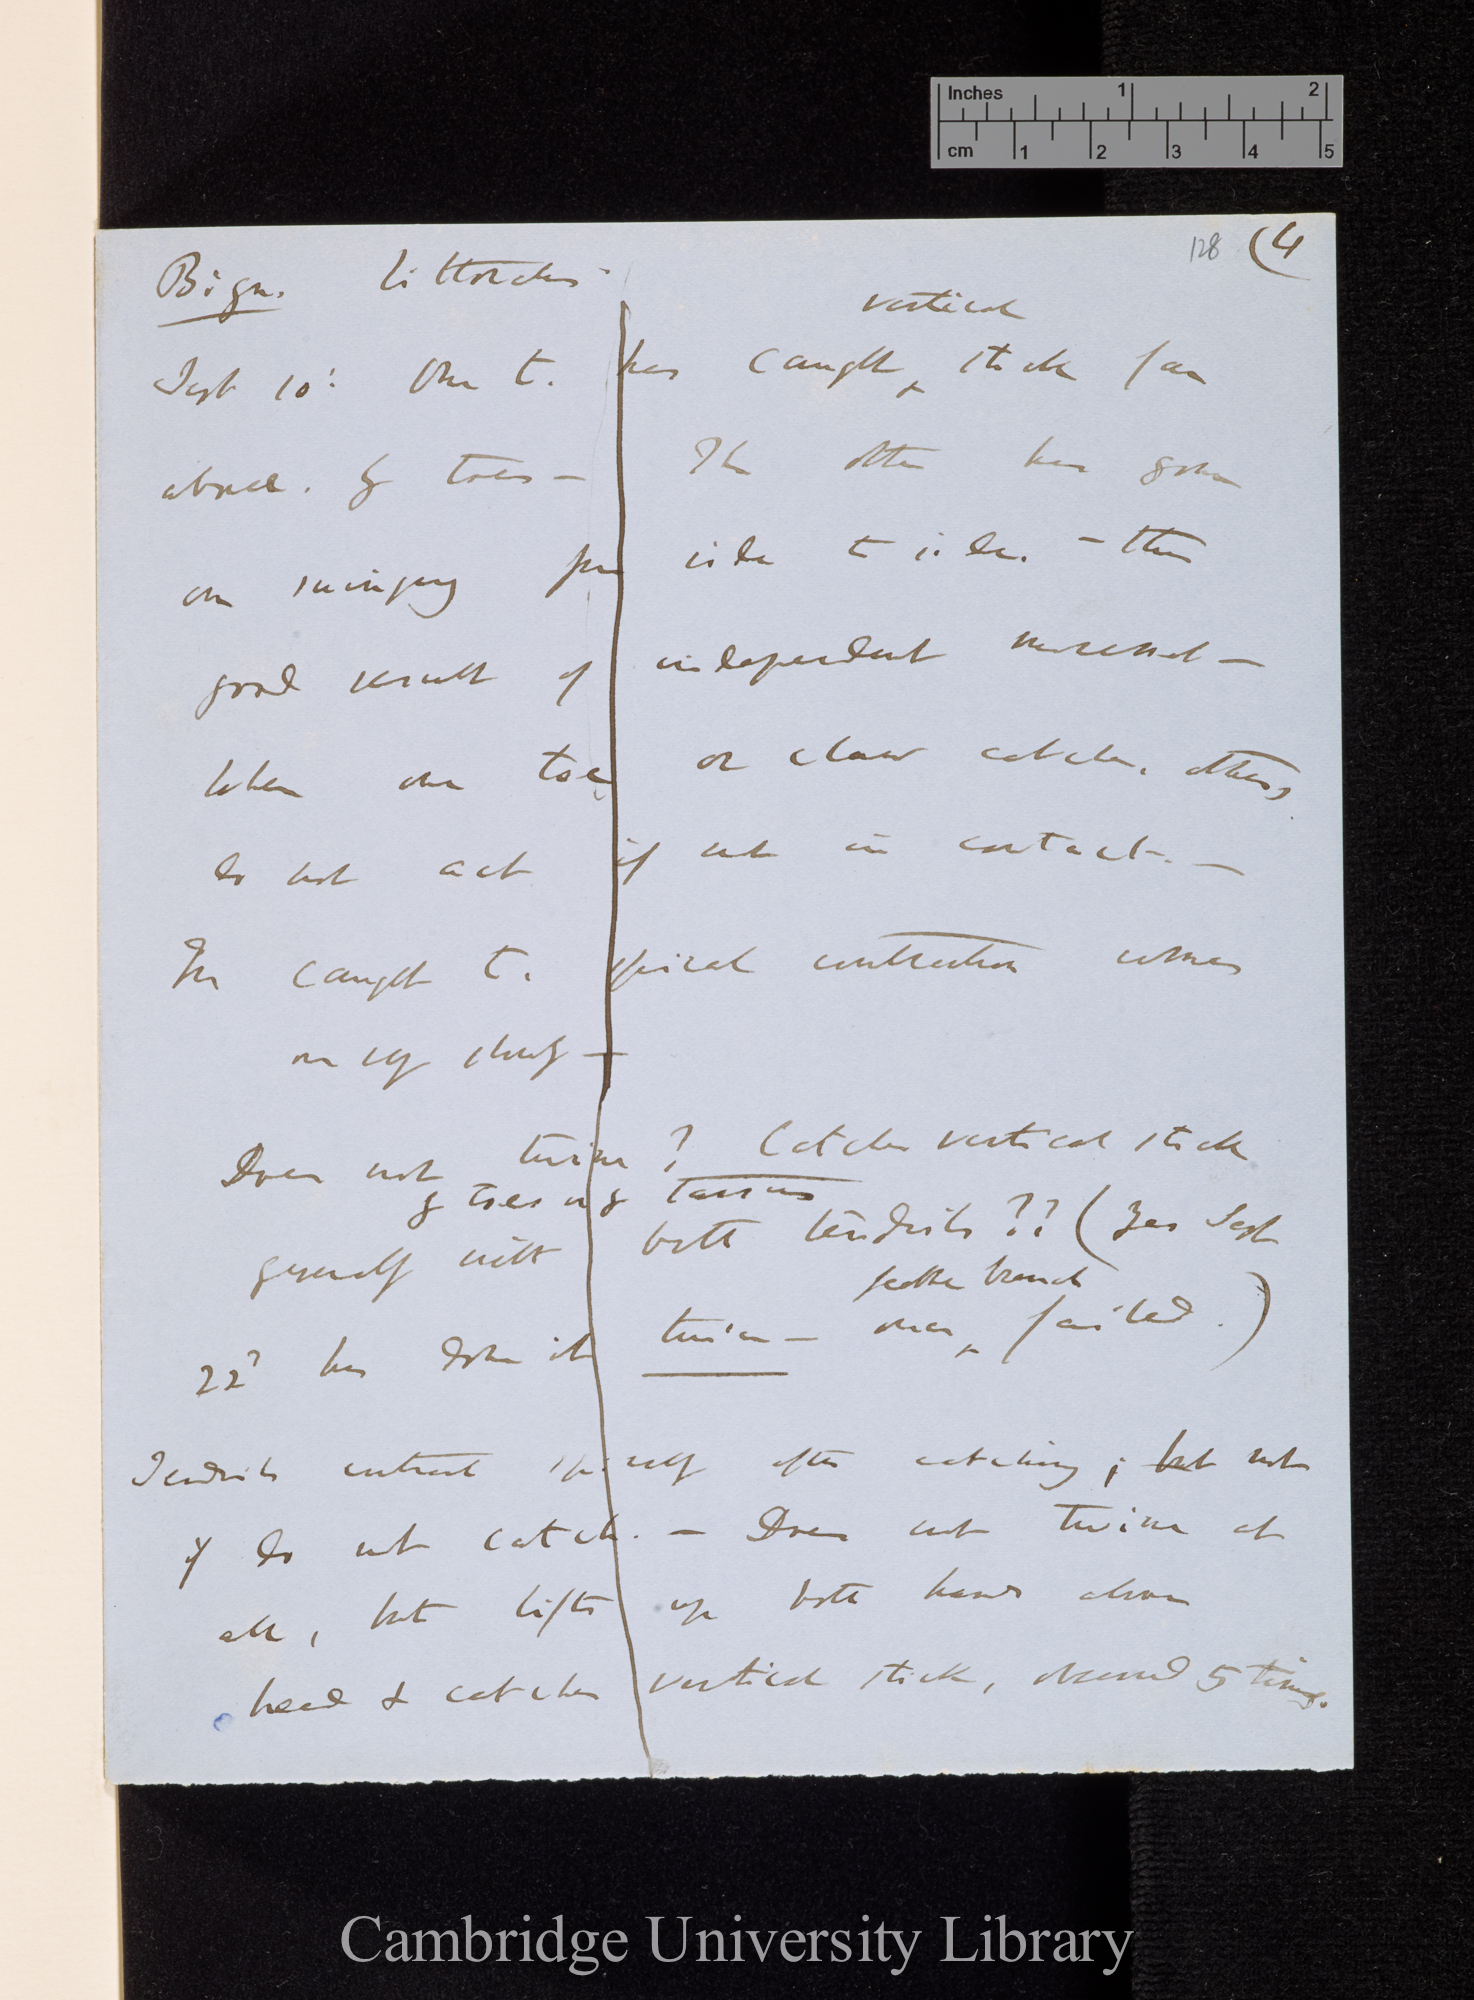 Inches 1 2
cm 1 2 3 4 5
128 (4
Bign. littoralis
vertical
Sept 10' One t. has caught stick far
above. by toes — The other has gone
on swinging from side to side. — thus
good result of independent movement —
When one toe or claw catches, others,
do not act if not in contact. —
In caught t. spiral contraction comes
on very slowly —
Does not twine? Catches vertical stick
by toes or by tarsus
generally with both tendrils?? (Yes Sept
branch
22' has done it twice — once failed.)
Tendrils contract spirally after catching; but not
if do not catch. — Does not twine at
all, but lifts up both hands above
head & catches vertical stick, observed 5 times.
Cambridge University Library